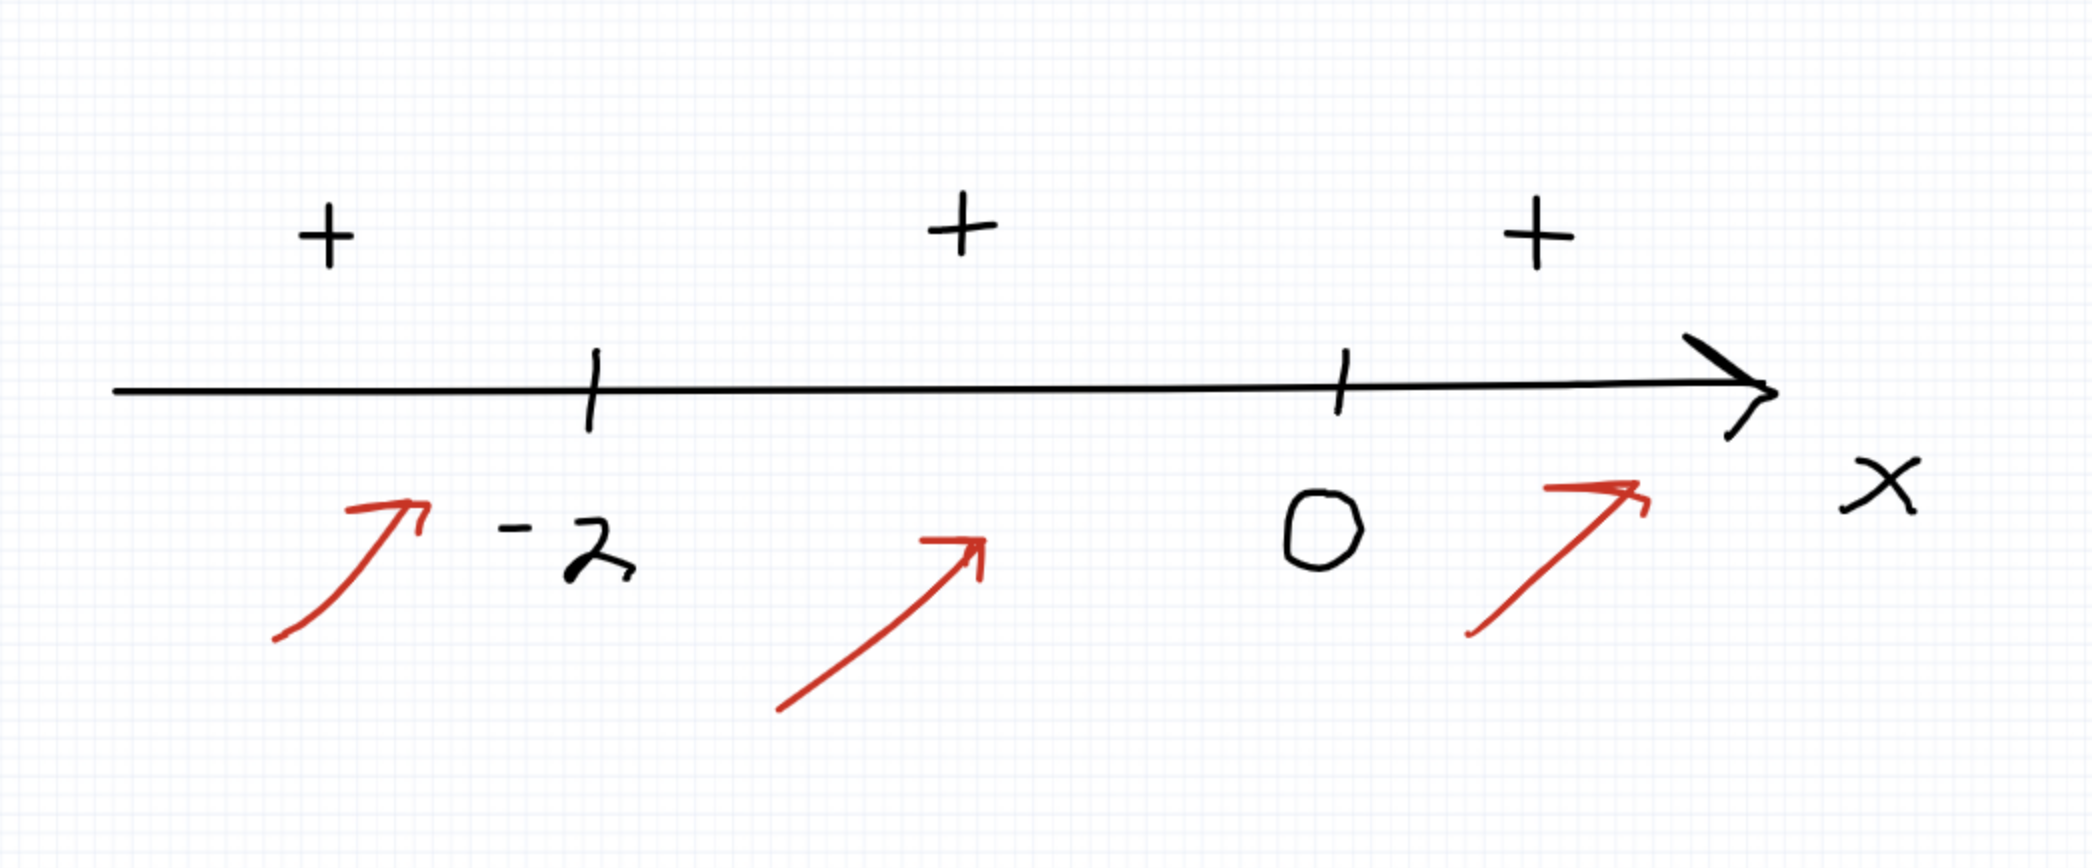 + + +
-2 0 x